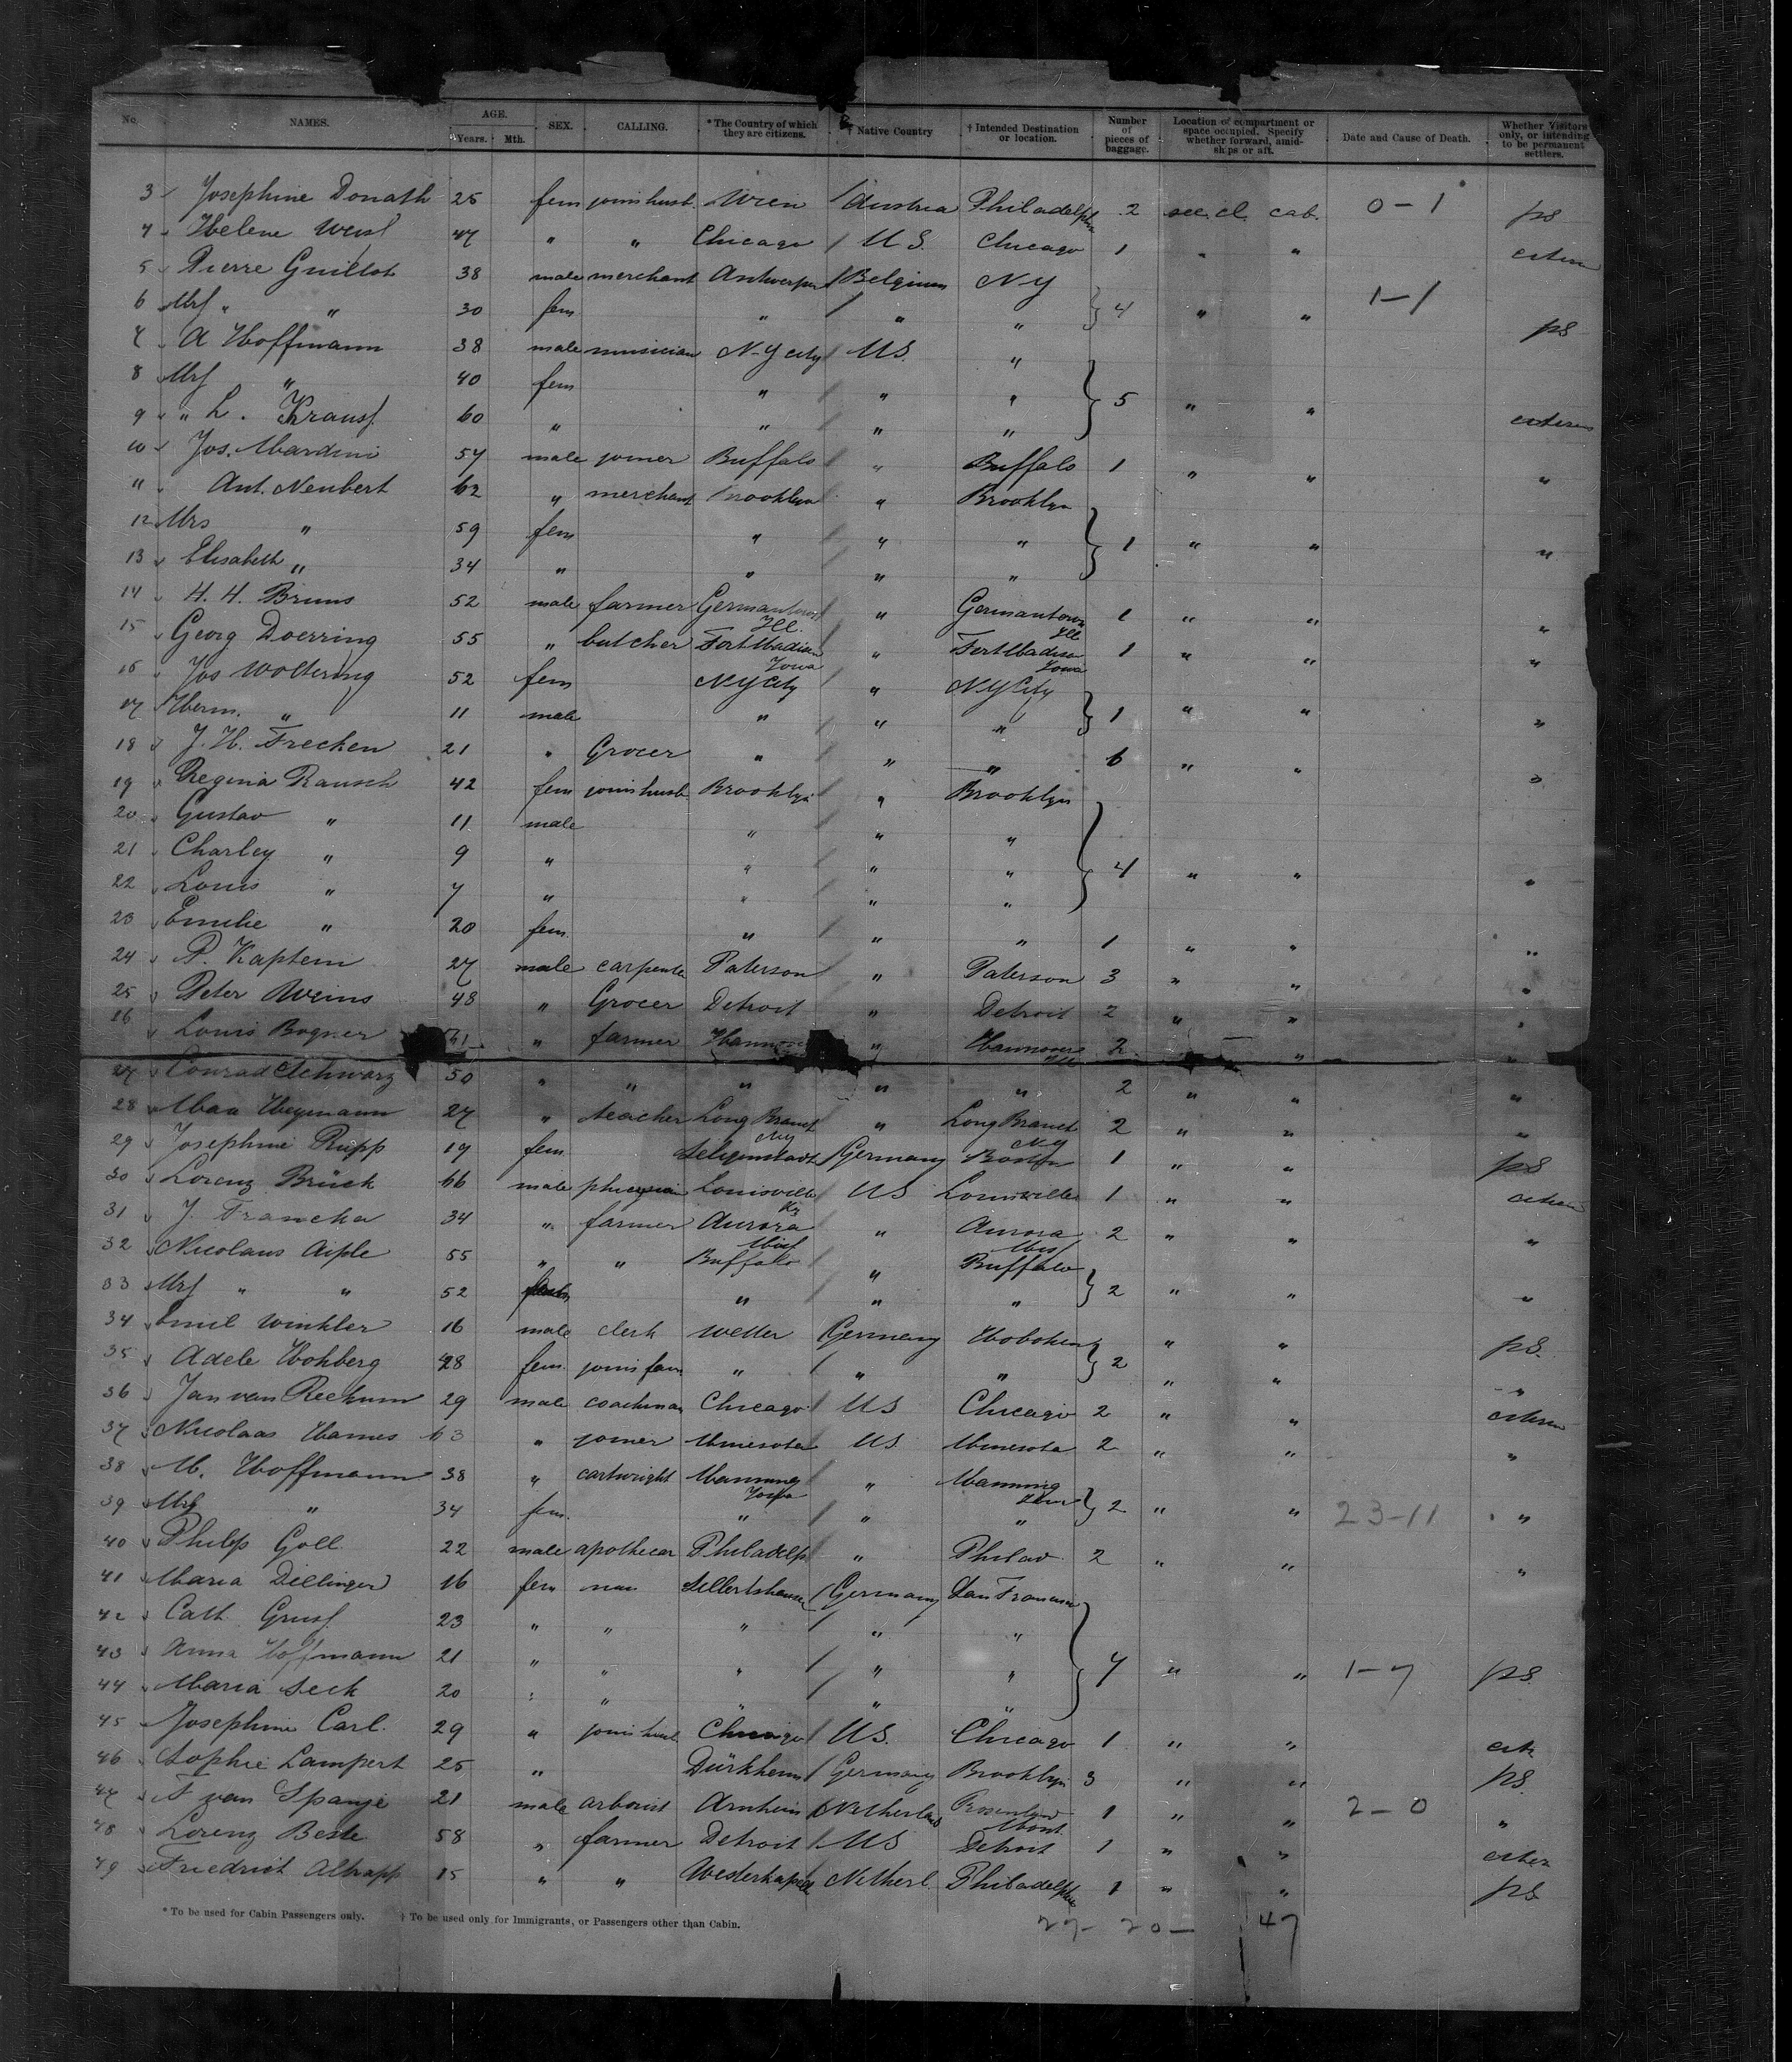 No. NAMES. AGE. Years. Mth. SEX. CALLING. *The Country of which they are citizens. † Native Country † Intended Destination or location. Number of pieces of baggage. Location of compartment or space occupied. Specify whether forward, amidships or aft. Date and Cause of Death. Whether Visitors only, or intending to be permanent settlers.
3 Josephine Donath 25 fem joins husb. Wien Austria Philadelphia 2 sec. cl. cab. 0-1 ps
4 Helene Weiss 47 " " Chicago U S. Chicago 1 " " citizen
5 Pierre Guillot 38 male merchant Antwerpen Belgium N-Y
6 Mrs " " 30 fem " " " 4 " " 1-1 ps
7 A Hoffmann 38 male musician N-Y City U S. "
8 Mrs " 40 fem " " " 5 " "
9 " L. Krauss 60 " " " " citizens
10 Jos. Mardini 54 male joiner Buffalo " Buffalo 1 " " "
11 Ant. Neubert 62 " merchant Brooklyn " Brooklyn
12 Mrs " 59 fem " " " 1 " " "
13 Elisabeth " 34 " " " "
14 H. H. Bruns 52 male farmer Germantown Ill. " Germantown Ill 1 " " "
15 Georg Doerring 55 " butcher Fort Madison Iowa " Fort Madison Iowa 1 " " "
16 Jos Woltering 52 fem N Y City " N Y City
17 Herm. " 11 male " " " 1 " " "
18 J. H. Frecken 21 " Grocer " " " 6 " " "
19 Regina Rausch 42 fem joins husb. Brooklyn " Brooklyn
20 Gustav " 11 male " " "
21 Charley " 9 " " " " 4 " " "
22 Louis " 7 " " " "
23 Emilie " 20 fem. " " " 1 " " "
24 P. Kaptein 27 male carpenter Paterson " Paterson 3 " " "
25 Peter Weins 48 " Grocer Detroit " Detroit 2 " " "
26 Louis Bogner 51 " farmer Hannover " Hannover Ill 2 " " "
27 Conrad Schwarz 50 " " " " " 2 " " "
28 Max Heymann 27 " teacher Long Branch N Y " Long Branch N Y 2 " " "
29 Josephine Rupp 19 fem Seligenstadt Germany Boston 1 " " ps
30 Lorenz Brück 66 male physician Louisville Ky US Louisville 1 " " citizen
31 J. Francka 34 " farmer Aurora Miss " Aurora Miss 2 " " "
32 Nicolaus Aiple 55 " " Buffalo " Buffalo
33 Mrs " " 52 fem " " " 2 " " "
34 Emil Winkler 16 male clerk Wetter Germany Hoboken " " ps.
35 Adele Hohberg 28 fem. joins fam " " " 2 " " "
36 Jan van Reekum 29 male coachman Chicago US Chicago 2 " " citizen
37 Nicolaas Hames 63 " joiner Minesota US. Minesota 2 " " "
38 M. Hoffmann 38 " cartwright Manning Iowa " Manning Iowa
39 Mrs " 34 fem. " " " 2 " " 23-11 "
40 Philip Goll 22 male apothecar Philadelp. " Philad. 2 " " "
41 Maria Dillinger 16 fem nun Sellertshausen Germany San Francisco
42 Cath Gruss 23 " " " " "
43 Anna Hoffmann 21 " " " " " 7 " " 1-7 ps
44 Maria Seck 20 " " " "
45 Josephine Carl. 29 " joins husb. Chicago US. Chicago 1 " " citz
46 Sophie Lampert 25 " Dürkheim Germany Brooklyn 3 " " ps
47 F van Spanje 21 male arborist Arnheim Netherland Mont. 1 " " 2-0 "
48 Lorenz Beste 58 " farmer Detroit US Detroit 1 " " citizen
49 Friedrich Altrapp 15 " " Westerkapelle Netherl. Philadelphia 1 " " ps
*To be used for Cabin Passengers only. † To be used only for Immigrants, or Passengers other than Cabin.
27- 20- 47